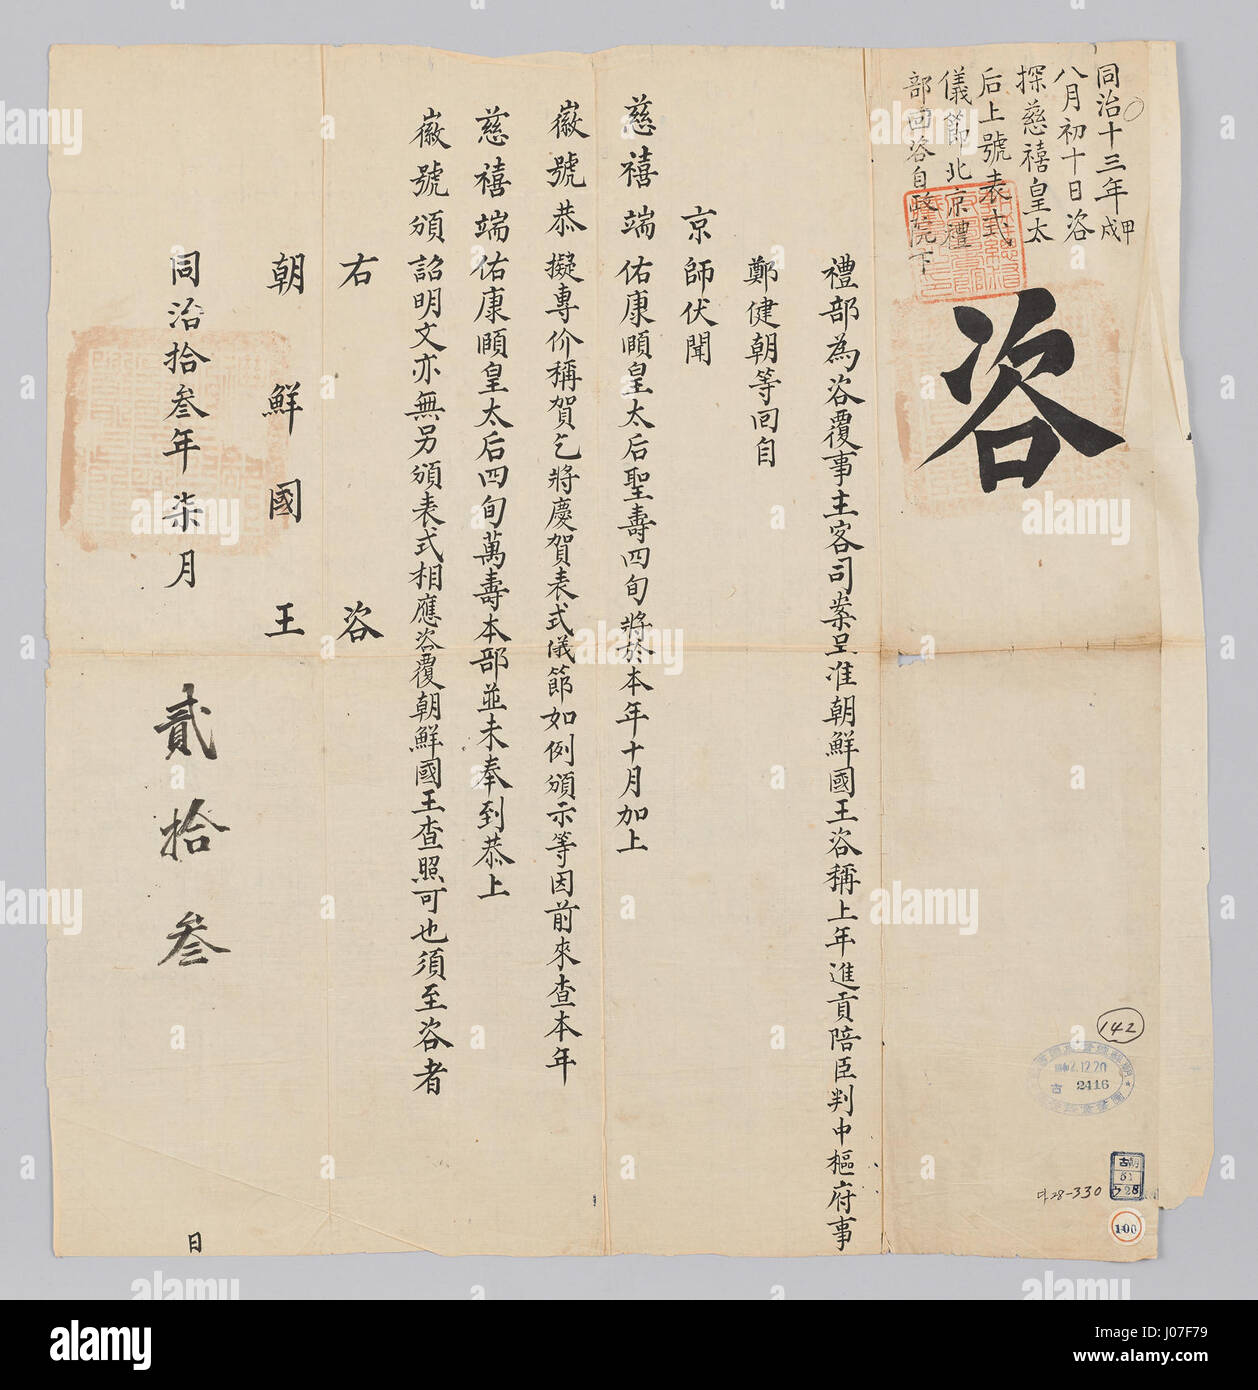 同治十三年甲戌
八月初十日咨
探慈禧皇太
后上號表式
儀節北京禮
部回咨自政院下
咨
禮部為咨覆事主客司案呈准朝鮮國王咨稱上年進貢陪臣判中樞府事
鄭健朝等回自
京師伏聞
慈禧端佑康頤皇太后聖壽四旬將於本年十月加上
徽號恭擬專价稱賀乞將慶賀表式儀節如例頒示等因前來查本年
慈禧端佑康頤皇太后四旬萬壽本部並未奉到恭上
徽號頒詔明文亦無另頒表式相應咨覆朝鮮國王查照可也須至咨者
右咨
朝鮮國王
同治拾叁年柒月貳拾叁日
142
12.20
古 2416
中28-330
古朝
51
ウ28
100
alamy
Image ID: J07F79
www.alamy.com